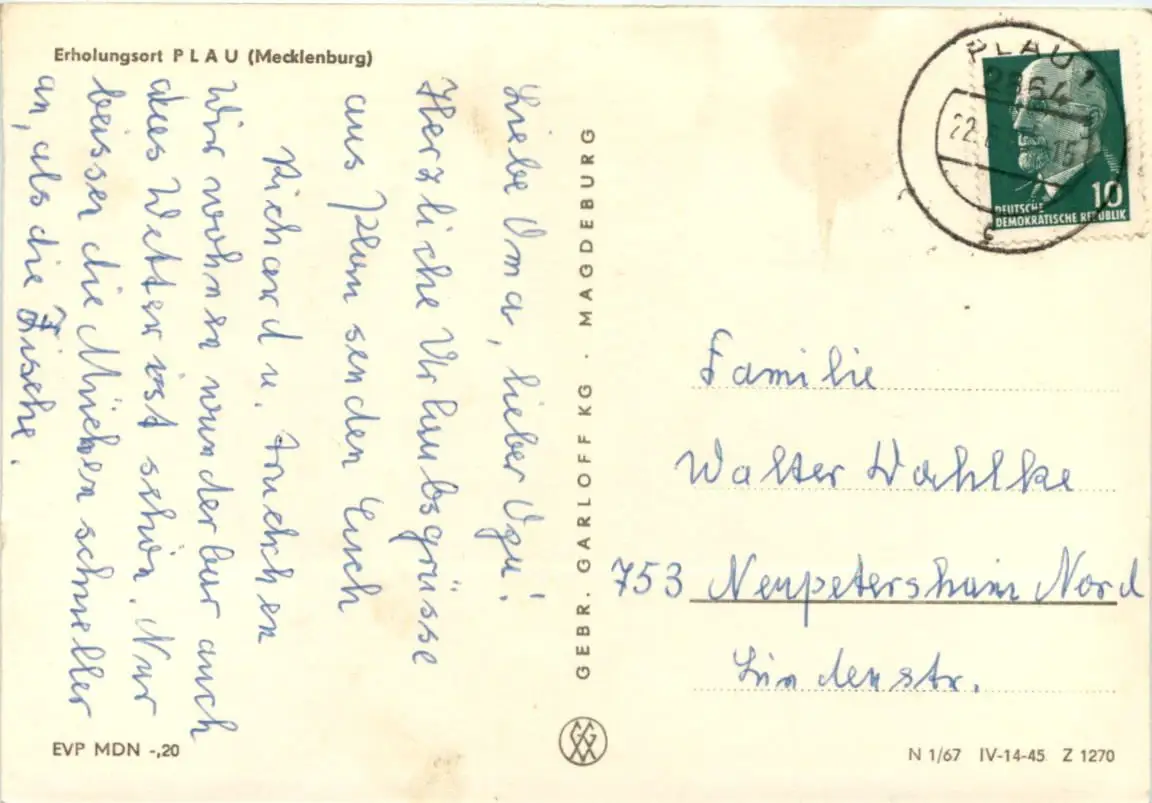 Erholungsort PLAU (Mecklenburg)
Liebe Oma, lieber Opu!
Herzliche Urlaubsgrüsse
aus Plau senden Euch
Richard u. Trudchen
Wir wohnen wunderbar auch
das Wetter ist schön. Nur
beissen die Mücken schneller
an, als die Fische.
GEBR. GARLOFF KG · MAGDEBURG
PLAU 1
2864
22.6.
15
c
10
DEUTSCHE
DEMOKRATISCHE REPUBLIK
Familie
Walter Wahlke
753 Neupetershain Nord
Lindenstr.
EVP MDN -,20
N 1/67 IV-14-45 Z 1270